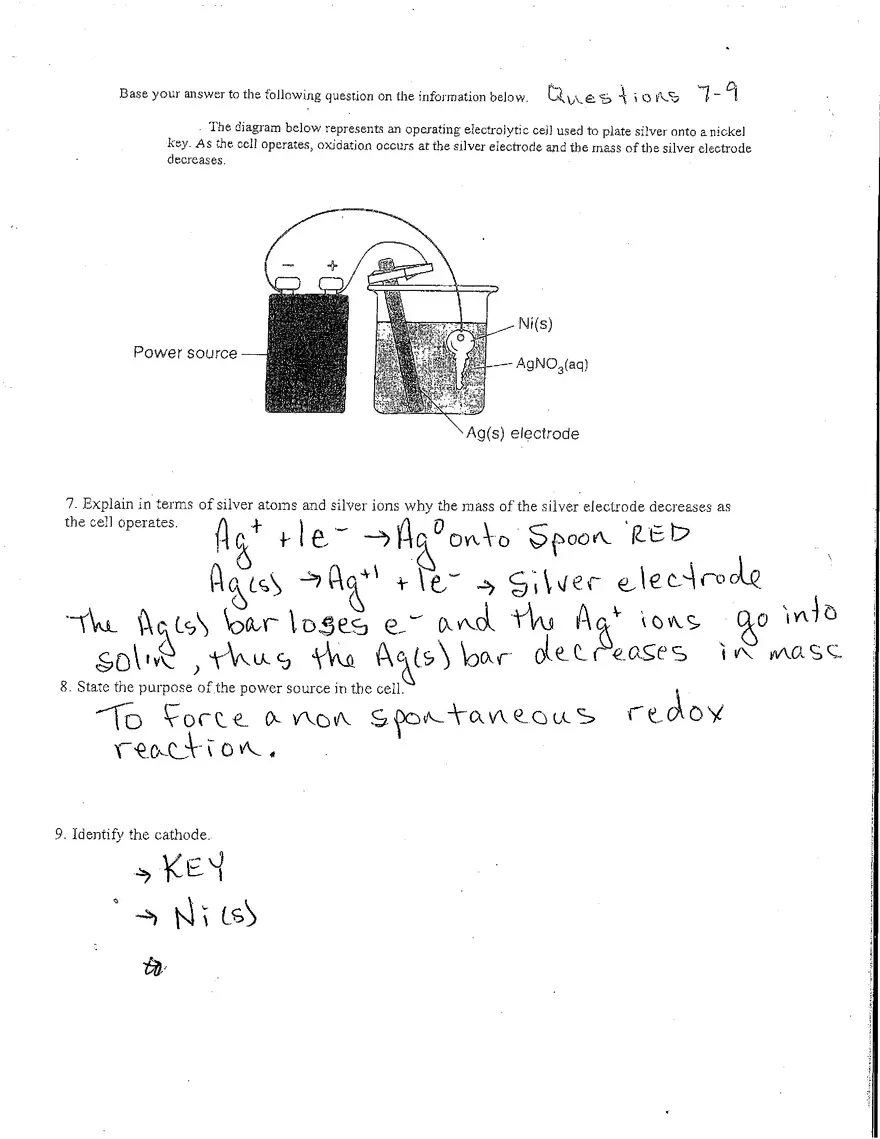 Base your answer to the following question on the information below. Questions 7-9
The diagram below represents an operating electrolytic cell used to plate silver onto a nickel
key. As the cell operates, oxidation occurs at the silver electrode and the mass of the silver electrode
decreases.
− +
Ni(s)
Power source
AgNO₃(aq)
Ag(s) electrode
7. Explain in terms of silver atoms and silver ions why the mass of the silver electrode decreases as
the cell operates.
Ag⁺ + 1e⁻ → Ag⁰ onto Spoon RED
Ag(s) → Ag⁺¹ + 1e⁻ → Silver electrode
The Ag(s) bar loses e⁻ and the Ag⁺ ions go into
sol'n, thus the Ag(s) bar decreases in mass
8. State the purpose of the power source in the cell.
To Force a non spontaneous redox
reaction.
9. Identify the cathode.
→ KEY
→ Ni(s)